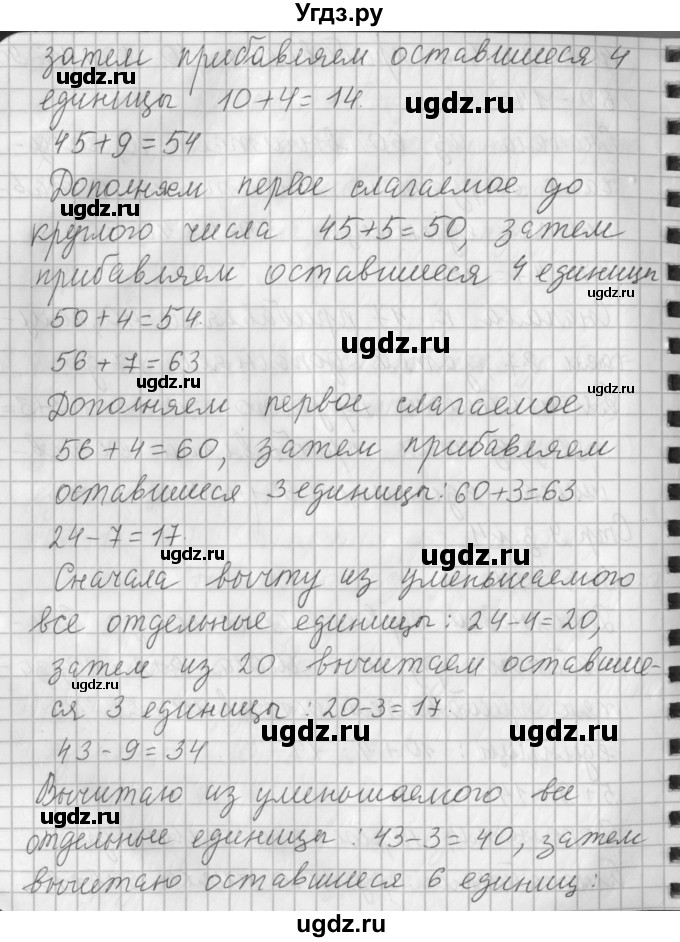 Угдз.ру
затем прибавляем оставшиеся 4
единицы 10+4=14.
ugdz.ru
ugdz.ru
45+9=54
Дополняем первое слагаемое до
ugdz.ru
круглого числа 45+5=50, затем
прибавляем оставшиеся 4 единицы
ugdz.ru
50+4=54.
ugdz.ru
56+7=63
ugdz.ru
ugdz.ru
Дополняем первое слагаемое
56+4=60, затем прибавляем
оставшиеся 3 единицы: 60+3=63
24-7=17.
ugdz.ru
ugdz.ru
Сначала вычту из уменьшаемого
все отдельные единицы: 24-4=20,
затем из 20 вычитаем оставшие-
ugdz.ru
ся 3 единицы: 20-3=17.
ugdz.ru
ugdz.ru
43-9=34
Вычитаю из уменьшаемого все
ugdz.ru
отдельные единицы: 43-3=40, затем
вычитаю оставшиеся 6 единиц:
ugdz.ru